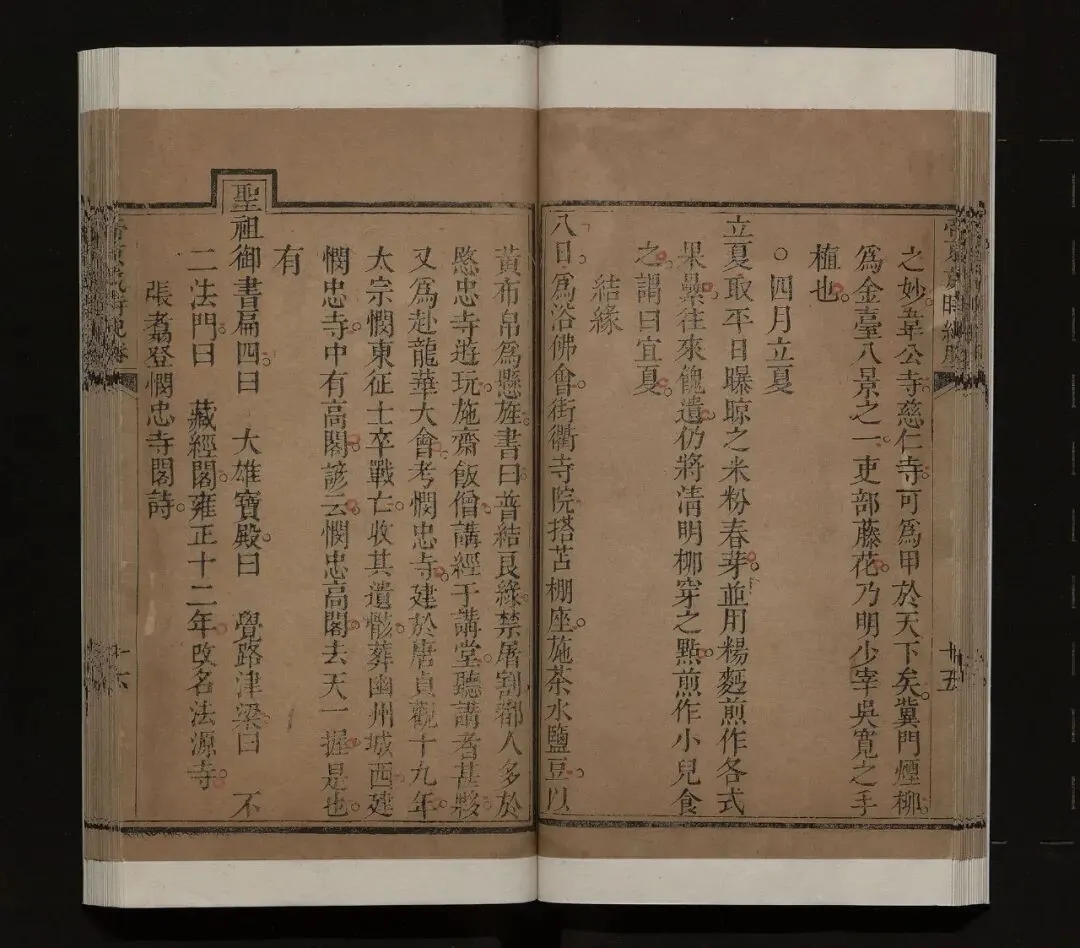 之妙五華公寺慈仁寺可爲甲於天下矣冀門煙柳
爲金臺八景之一吏部藤花乃明少宰吳寬之手
植也
○四月立夏
立夏取平日曝晾之米粉春芽並用糖麪煎作各式
果疊往來餽遺仍將清明柳穿之點煎作小兒食
之謂曰宜夏
結緣
八日爲浴佛會街衢寺院搭苫棚座施茶水鹽豆以
黃布帛爲懸旌書曰普結良緣禁屠割都人多於
愍忠寺遊玩施齋飯僧講經于講堂聽講者甚夥
又爲赴龍華大會考憫忠寺建於唐貞觀十九年
太宗憫東征士卒戰亡收其遺骸葬幽州城西建
憫忠寺中有高閣諺云憫忠高閣去天一握是也
有
聖祖御書扁四曰 大雄寶殿曰 覺路津梁曰 不
二法門曰 藏經閣雍正十二年改名法源寺
張翥登憫忠寺閣詩
帝京歲時紀勝
十五
十六